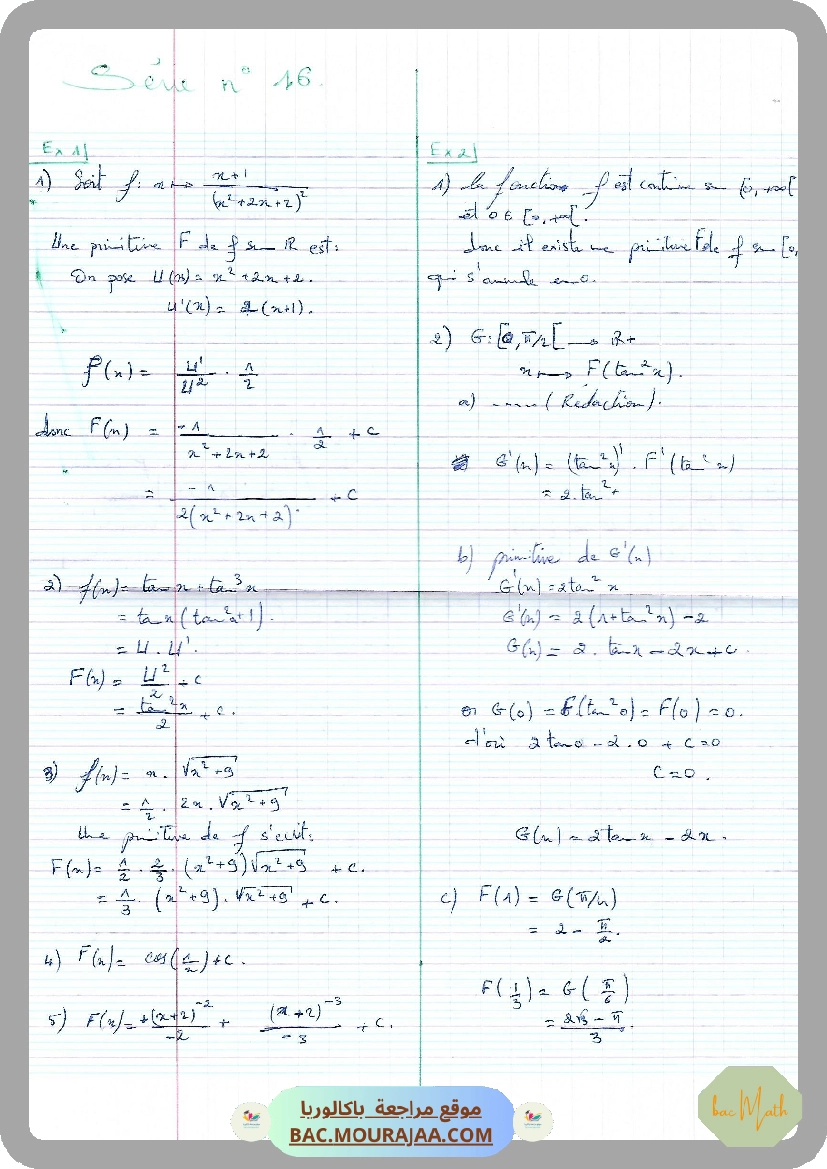 Série n° 16.
Ex 1)
1) Soit f: x ↦ (x+1)/(x²+2x+2)²
Une primitive F de f sur ℝ est:
On pose U(x) = x²+2x+2.
U'(x) = 2(x+1).
f(x) = U'/U² · 1/2
donc F(x) = -1/(x²+2x+2) · 1/2 + c
= -1/(2(x²+2x+2)) + c
2) f(x) = tan x + tan³x
= tan x (tan²x+1).
= U · U'.
F(x) = U²/2 + c
= tan²x/2 + c.
3) f(x) = x · √(x²+9)
= 1/2 · 2x · √(x²+9)
Une primitive de f s'écrit:
F(x) = 1/2 · 2/3 · (x²+9)√(x²+9) + c.
= 1/3 · (x²+9) · √(x²+9) + c.
4) F(x) = cos(1/x) + c.
5) F(x) = +(x+2)⁻²/-2 + (x+2)⁻³/-3 + c.
Ex 2)
1) La fonction f est continue sur [0, +∞[
et 0 ∈ [0, +∞[.
donc il existe une primitive F de f sur [0,
qui s'annule en 0.
2) G: [0, π/2[ → ℝ+
x ↦ F(tan²x).
a) ---- (Rédaction).
G'(x) = (tan²x)' · F'(tan²x)
= 2·tan²
b) primitive de G'(x)
G'(x) = 2tan²x
G'(x) = 2(1+tan²x) - 2
G(x) = 2 · tan x - 2x + c.
or G(0) = F(tan²0) = F(0) = 0.
d'où 2 tan 0 - 2·0 + c = 0
c = 0.
G(x) = 2tan x - 2x.
c) F(1) = G(π/4)
= 2 - π/2.
F(1/3) = G(π/6)
= (2√3 - π)/3.
موقع مراجعة باكالوريا
BAC.MOURAJAA.COM
bac Math